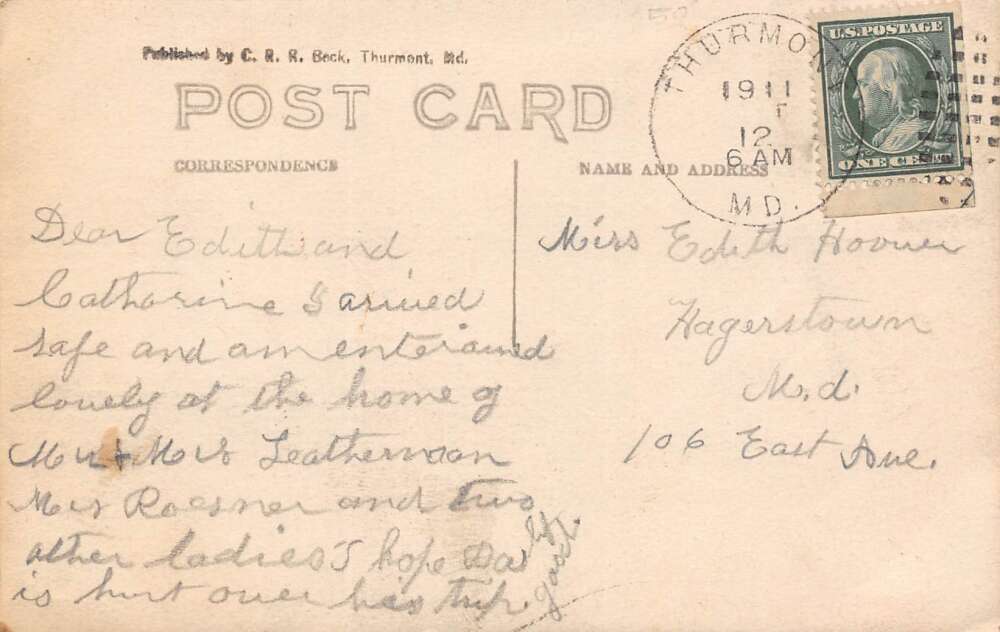 Published by C. R. R. Beck, Thurmont, Md.
POST CARD
CORRESPONDENCE
NAME AND ADDRESS
THURMONT
1911
12
6 AM
MD.
U.S. POSTAGE
ONE CENT
Dear Edith and
Catharine I arived
safe and am enterained
lovely at the home of
Mr & Mrs Leatherman
Mrs Roesner and two
other ladies I hope Da
is hurt over his trip.
Miss Edith Hoover
Hagerstown
M.d.
106 East Ave.